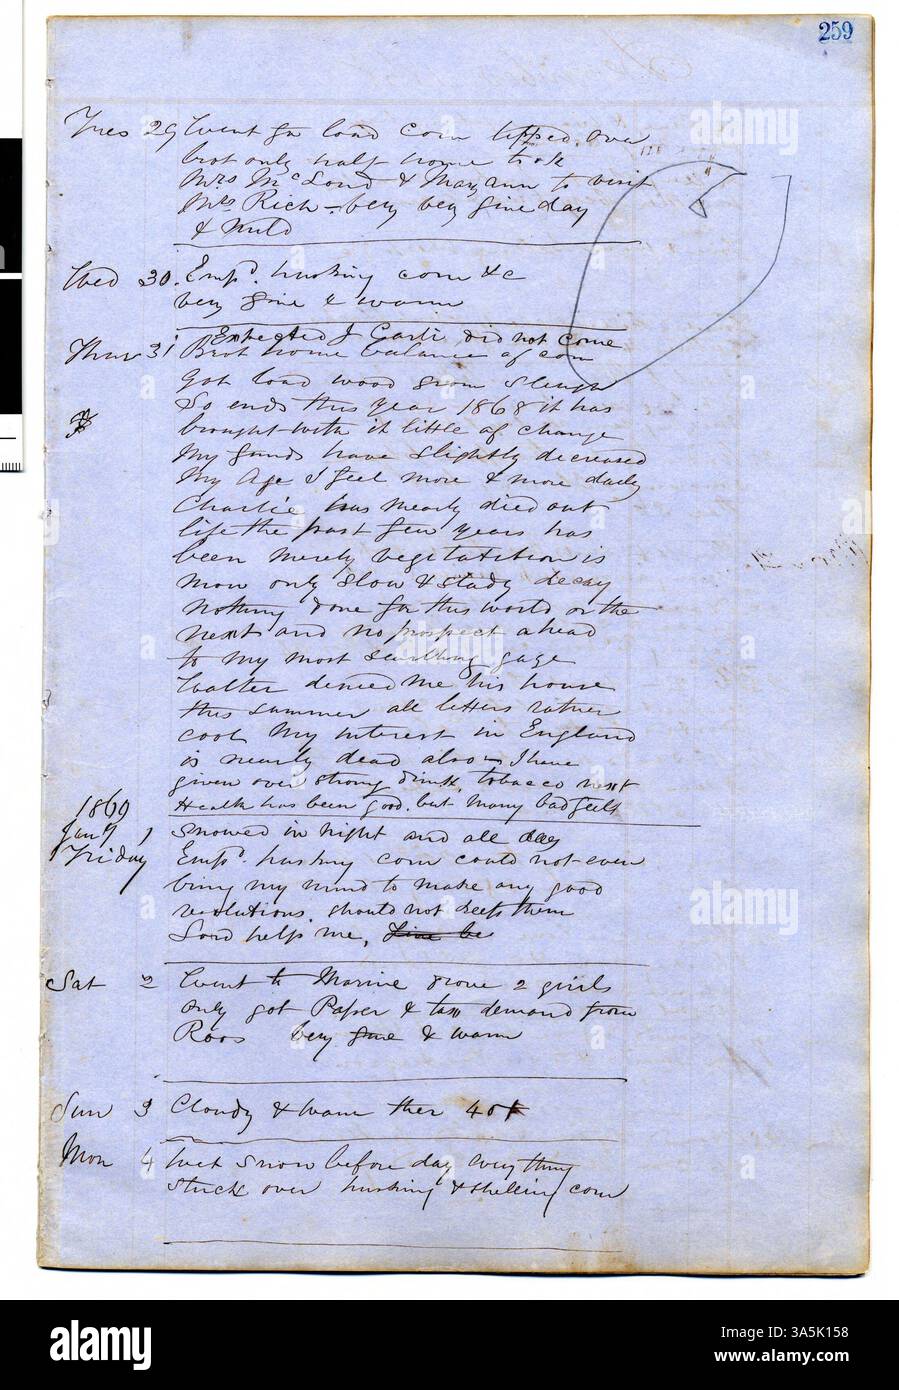 259
Tues 29 Went for load corn tipped over
brot only half home took
Mrs McLoud & Maryann to visit
Mrs Rich - very very fine day
& Mild
Wed 30. Empd. husking corn &c
very fine & warm
Expected J Carli did not come
Thur 31 Brot home balance of corn
Got load wood from Slough
So ends this year 1868 it has
brought with it little of change
My funds have slightly decreased
My Age I feel more & more daily
Charlie has nearly died out
life the past few years has
been merely vegetatition is
now only slow & stady decay
Nothing done for this world or the
next and no prospect ahead
to my most searthing gaze
Walter denied me his house
this summer all letters rather
cool My interest in England
is nearly dead also - I have
given over strong drink, tobacco next
Health has been good, but many bad feels
1869
Jany 1
Friday
Snowed in night and all day
Empd. husking corn could not even
bring my mind to make any good
resolutions. should not keep them
Lord help me,
Sat 2 Went to Marine drove 2 girls
only got Paper & tax demand from
Roos very fine & warm
Sun 3 Cloudy & warm ther 40
Mon 4 Wet Snow before day everything
stuck over husking & shelling corn
alamy
alamy
Image ID: 3A5K158
www.alamy.com